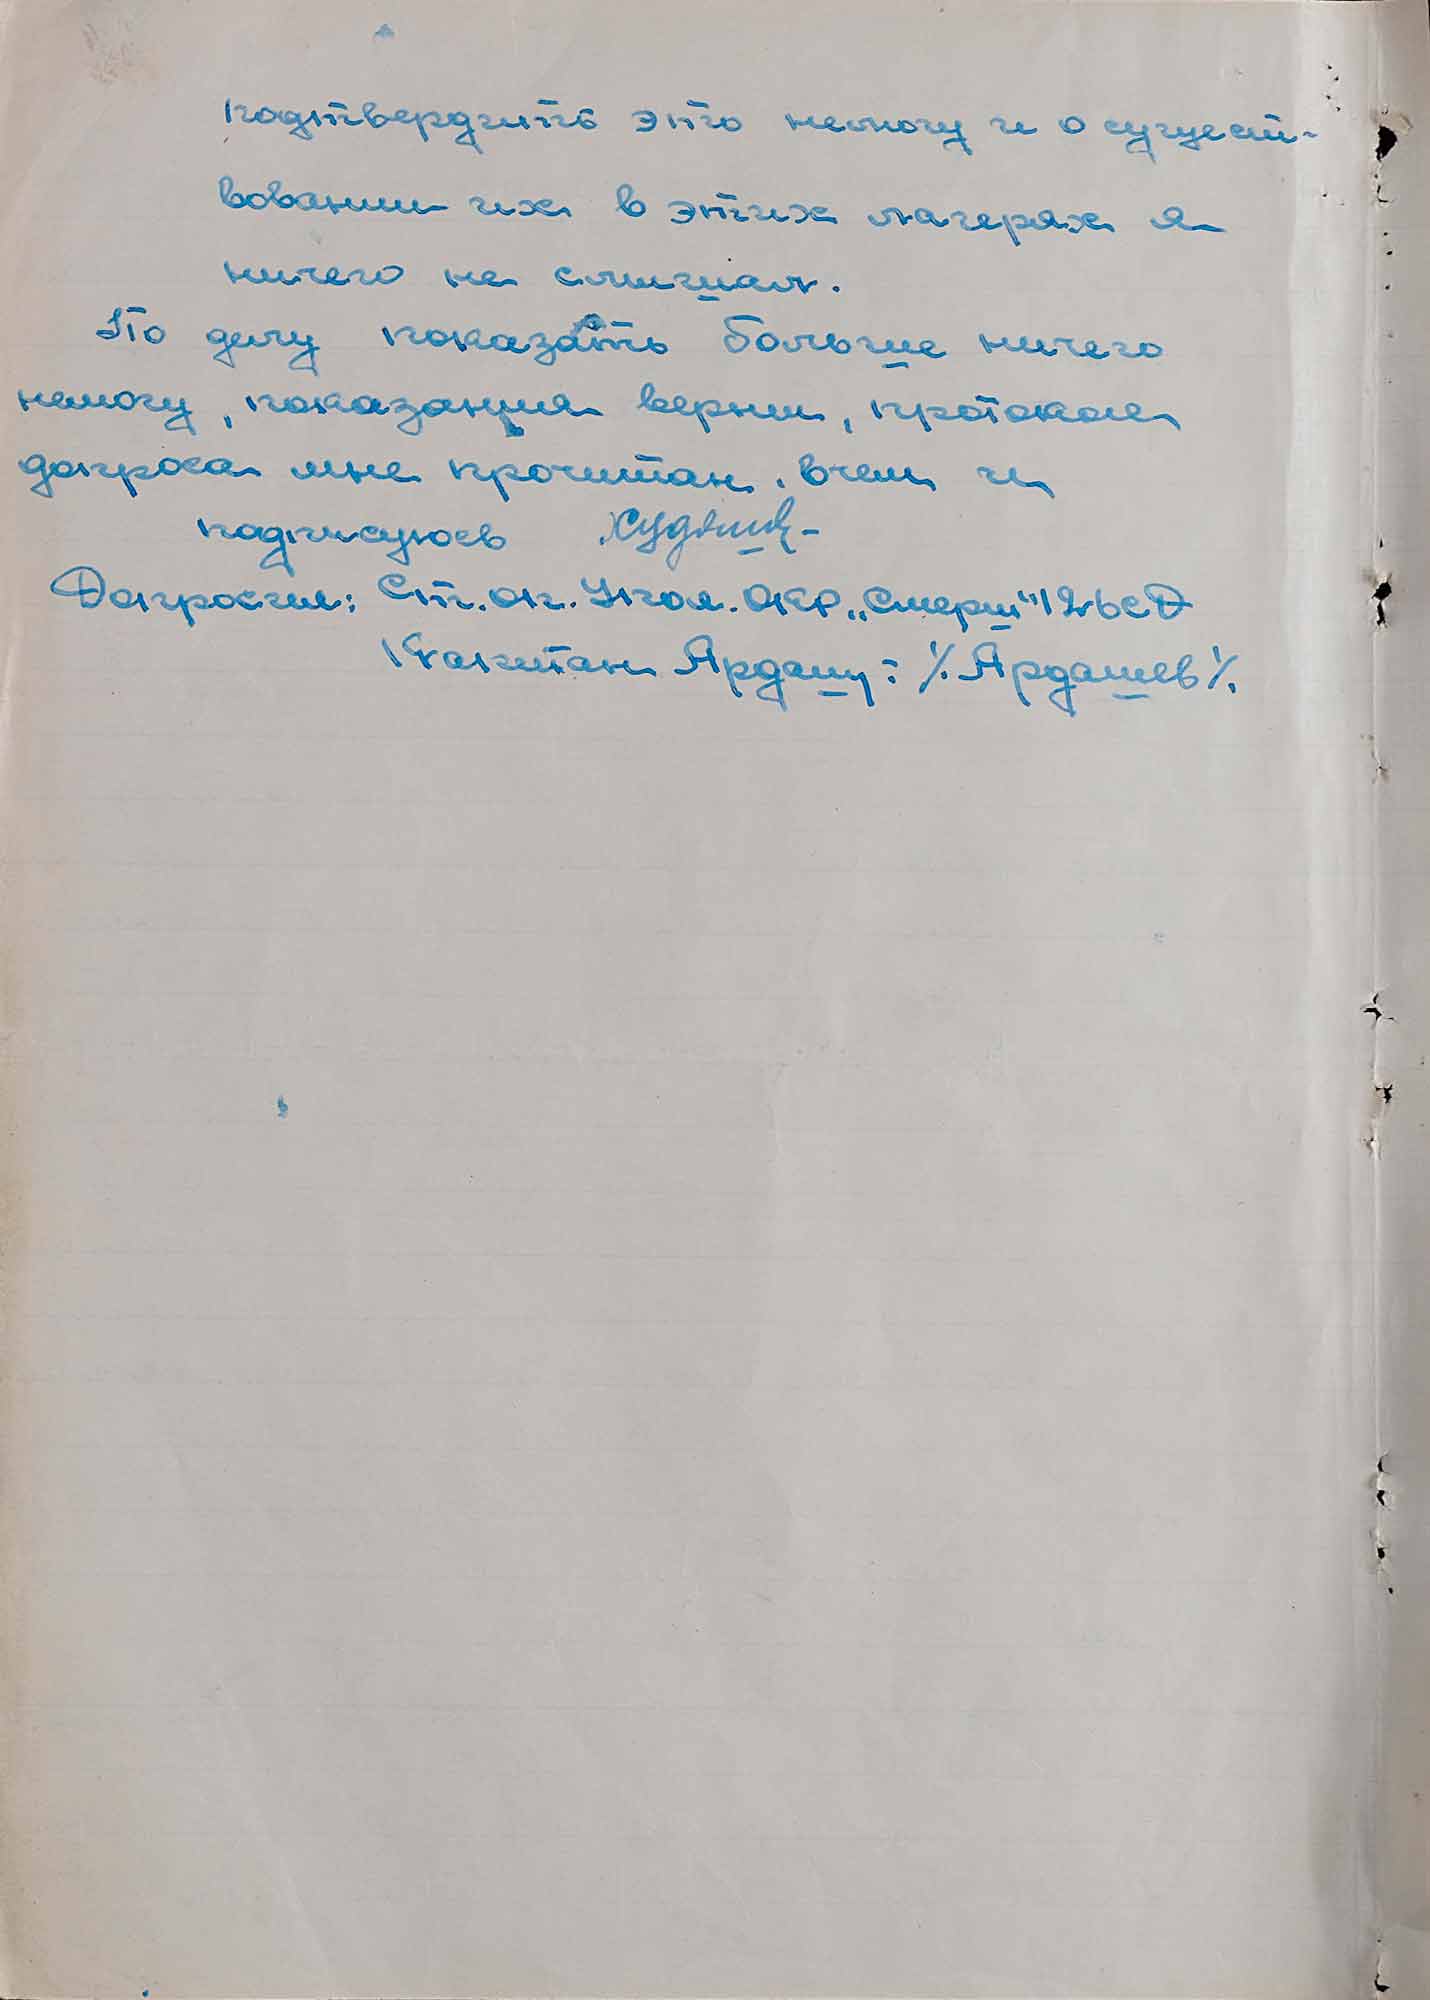 подтвердить это немогу и о сущест-
вовании их в этих лагерях я
ничего не слишал.
По делу показать больше ничего
немогу, показания верни, протокол
допроса мне прочитан, вчем и
подписуюсь
Допросил: Ст. оп. Упол. ОКР „Смерш"
Капитан Ардаш: /. Ардашев /.